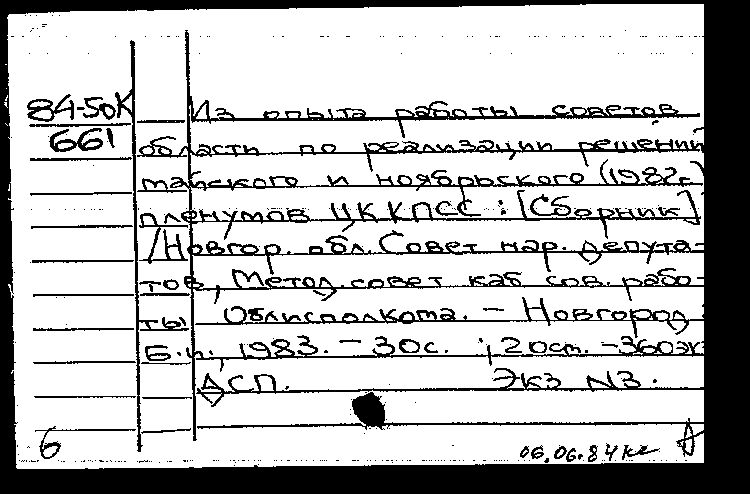 84-50К Из опыта работы советов
661 области по реализации решений
майского и ноябрьского (1982г.)
пленумов ЦК КПСС : [Сборник]
/Новгор. обл. Совет нар. депута-
тов, Метод. совет каб сов. рабо-
ты Облисполкома. - Новгород :
Б.и., 1983. - 30с. ; 20см. - 360эк
ДСП. Экз N3.
6 06.06.84